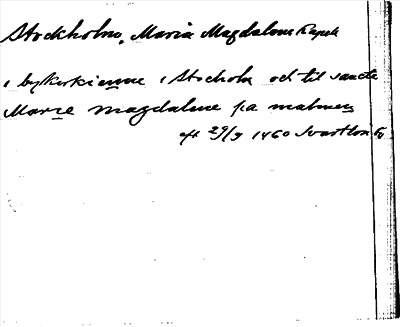 Stockholm, Maria Magdalena Kapell
i bykirkienne i Stocholm och til sancte
Marie magdalene pa malmen
eft 29/9 1460 Svartbr